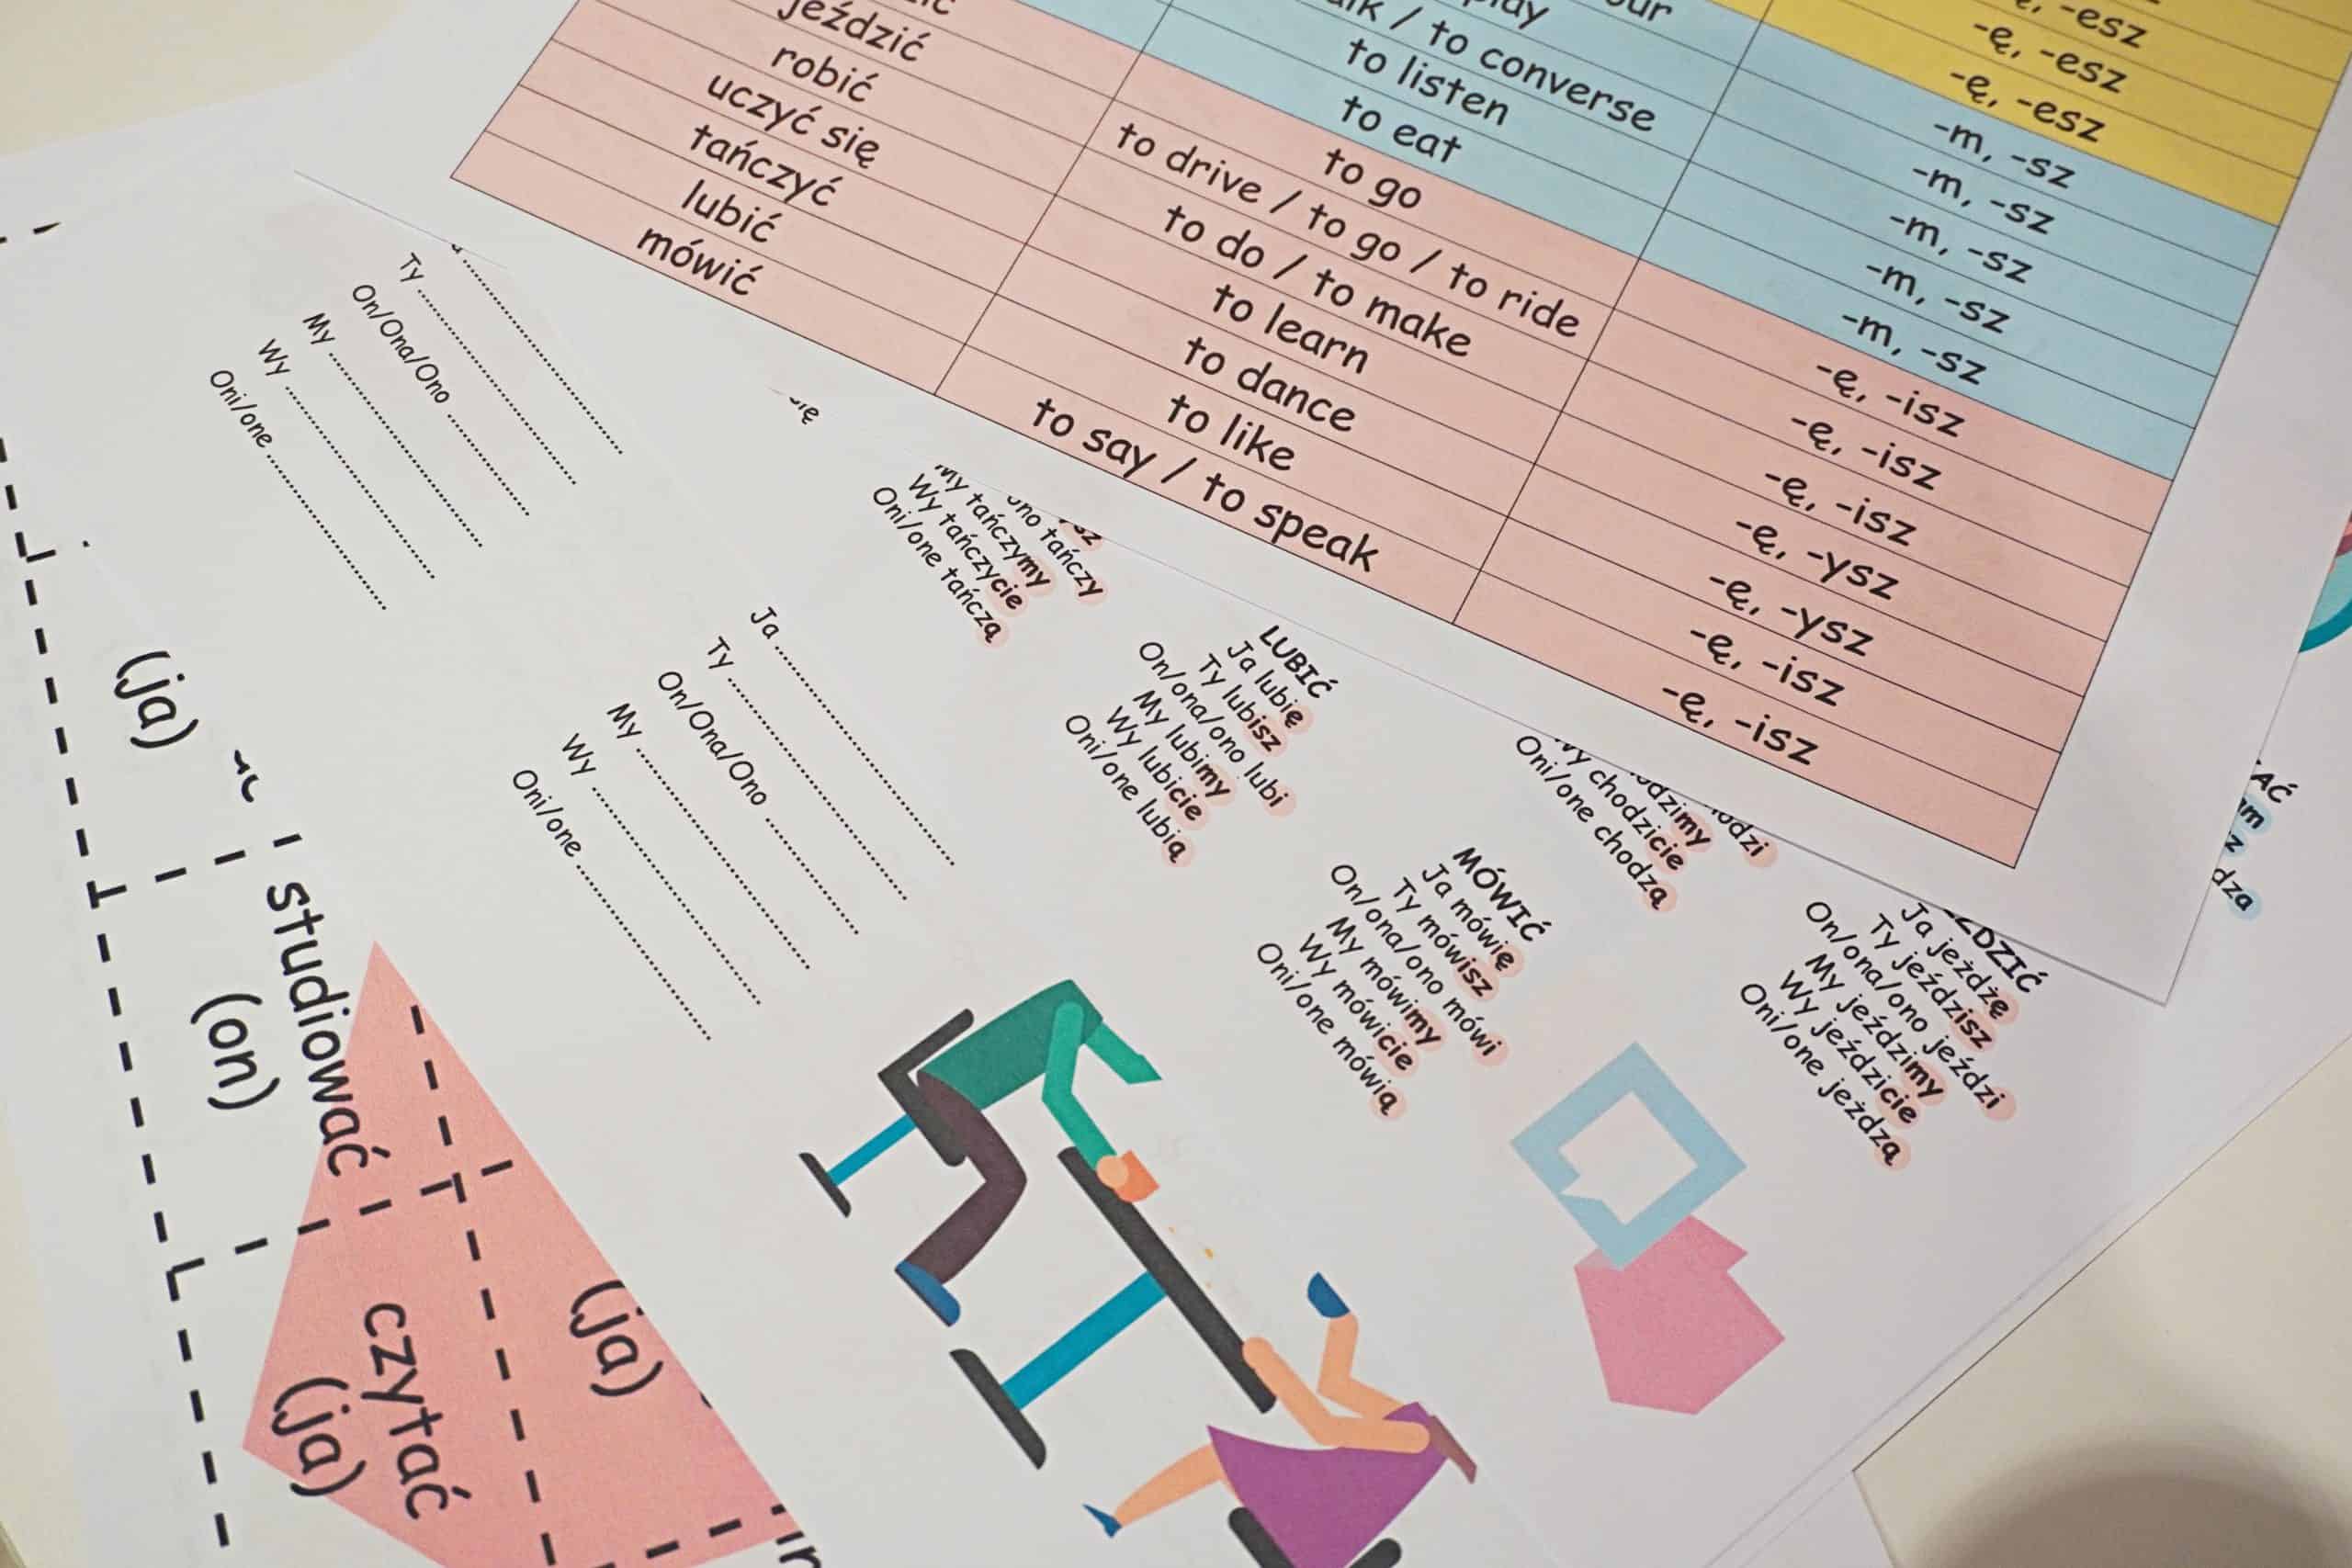 -esz
-ę, -esz
-ę, -esz
-m, -sz
-m, -sz
/ to converse -m, -sz
to listen -m, -sz
to eat -m, -sz
to go -ę, -isz
jeździć to drive / to go / to ride -ę, -isz
robić to do / to make -ę, -isz
uczyć się to learn -ę, -ysz
tańczyć to dance -ę, -ysz
lubić to like -ę, -isz
mówić to say / to speak -ę, -isz
Ty
On/Ona/Ono
My
Wy
Oni/one
Ja
Ty
On/Ona/Ono
My
Wy
Oni/one
tańczy
My tańczymy
Wy tańczycie
Oni/one tańczą
LUBIĆ
Ja lubię
Ty lubisz
On/ona/ono lubi
My lubimy
Wy lubicie
Oni/one lubią
MÓWIĆ
Ja mówię
Ty mówisz
On/ona/ono mówi
My mówimy
Wy mówicie
Oni/one mówią
Wy chodzicie
Oni/one chodzą
Ja jeżdżę
Ty jeździsz
On/ona/ono jeździ
My jeździmy
Wy jeździcie
Oni/one jeżdżą
(ja)
studiować
(on)
czytać
(ja)
(ja)